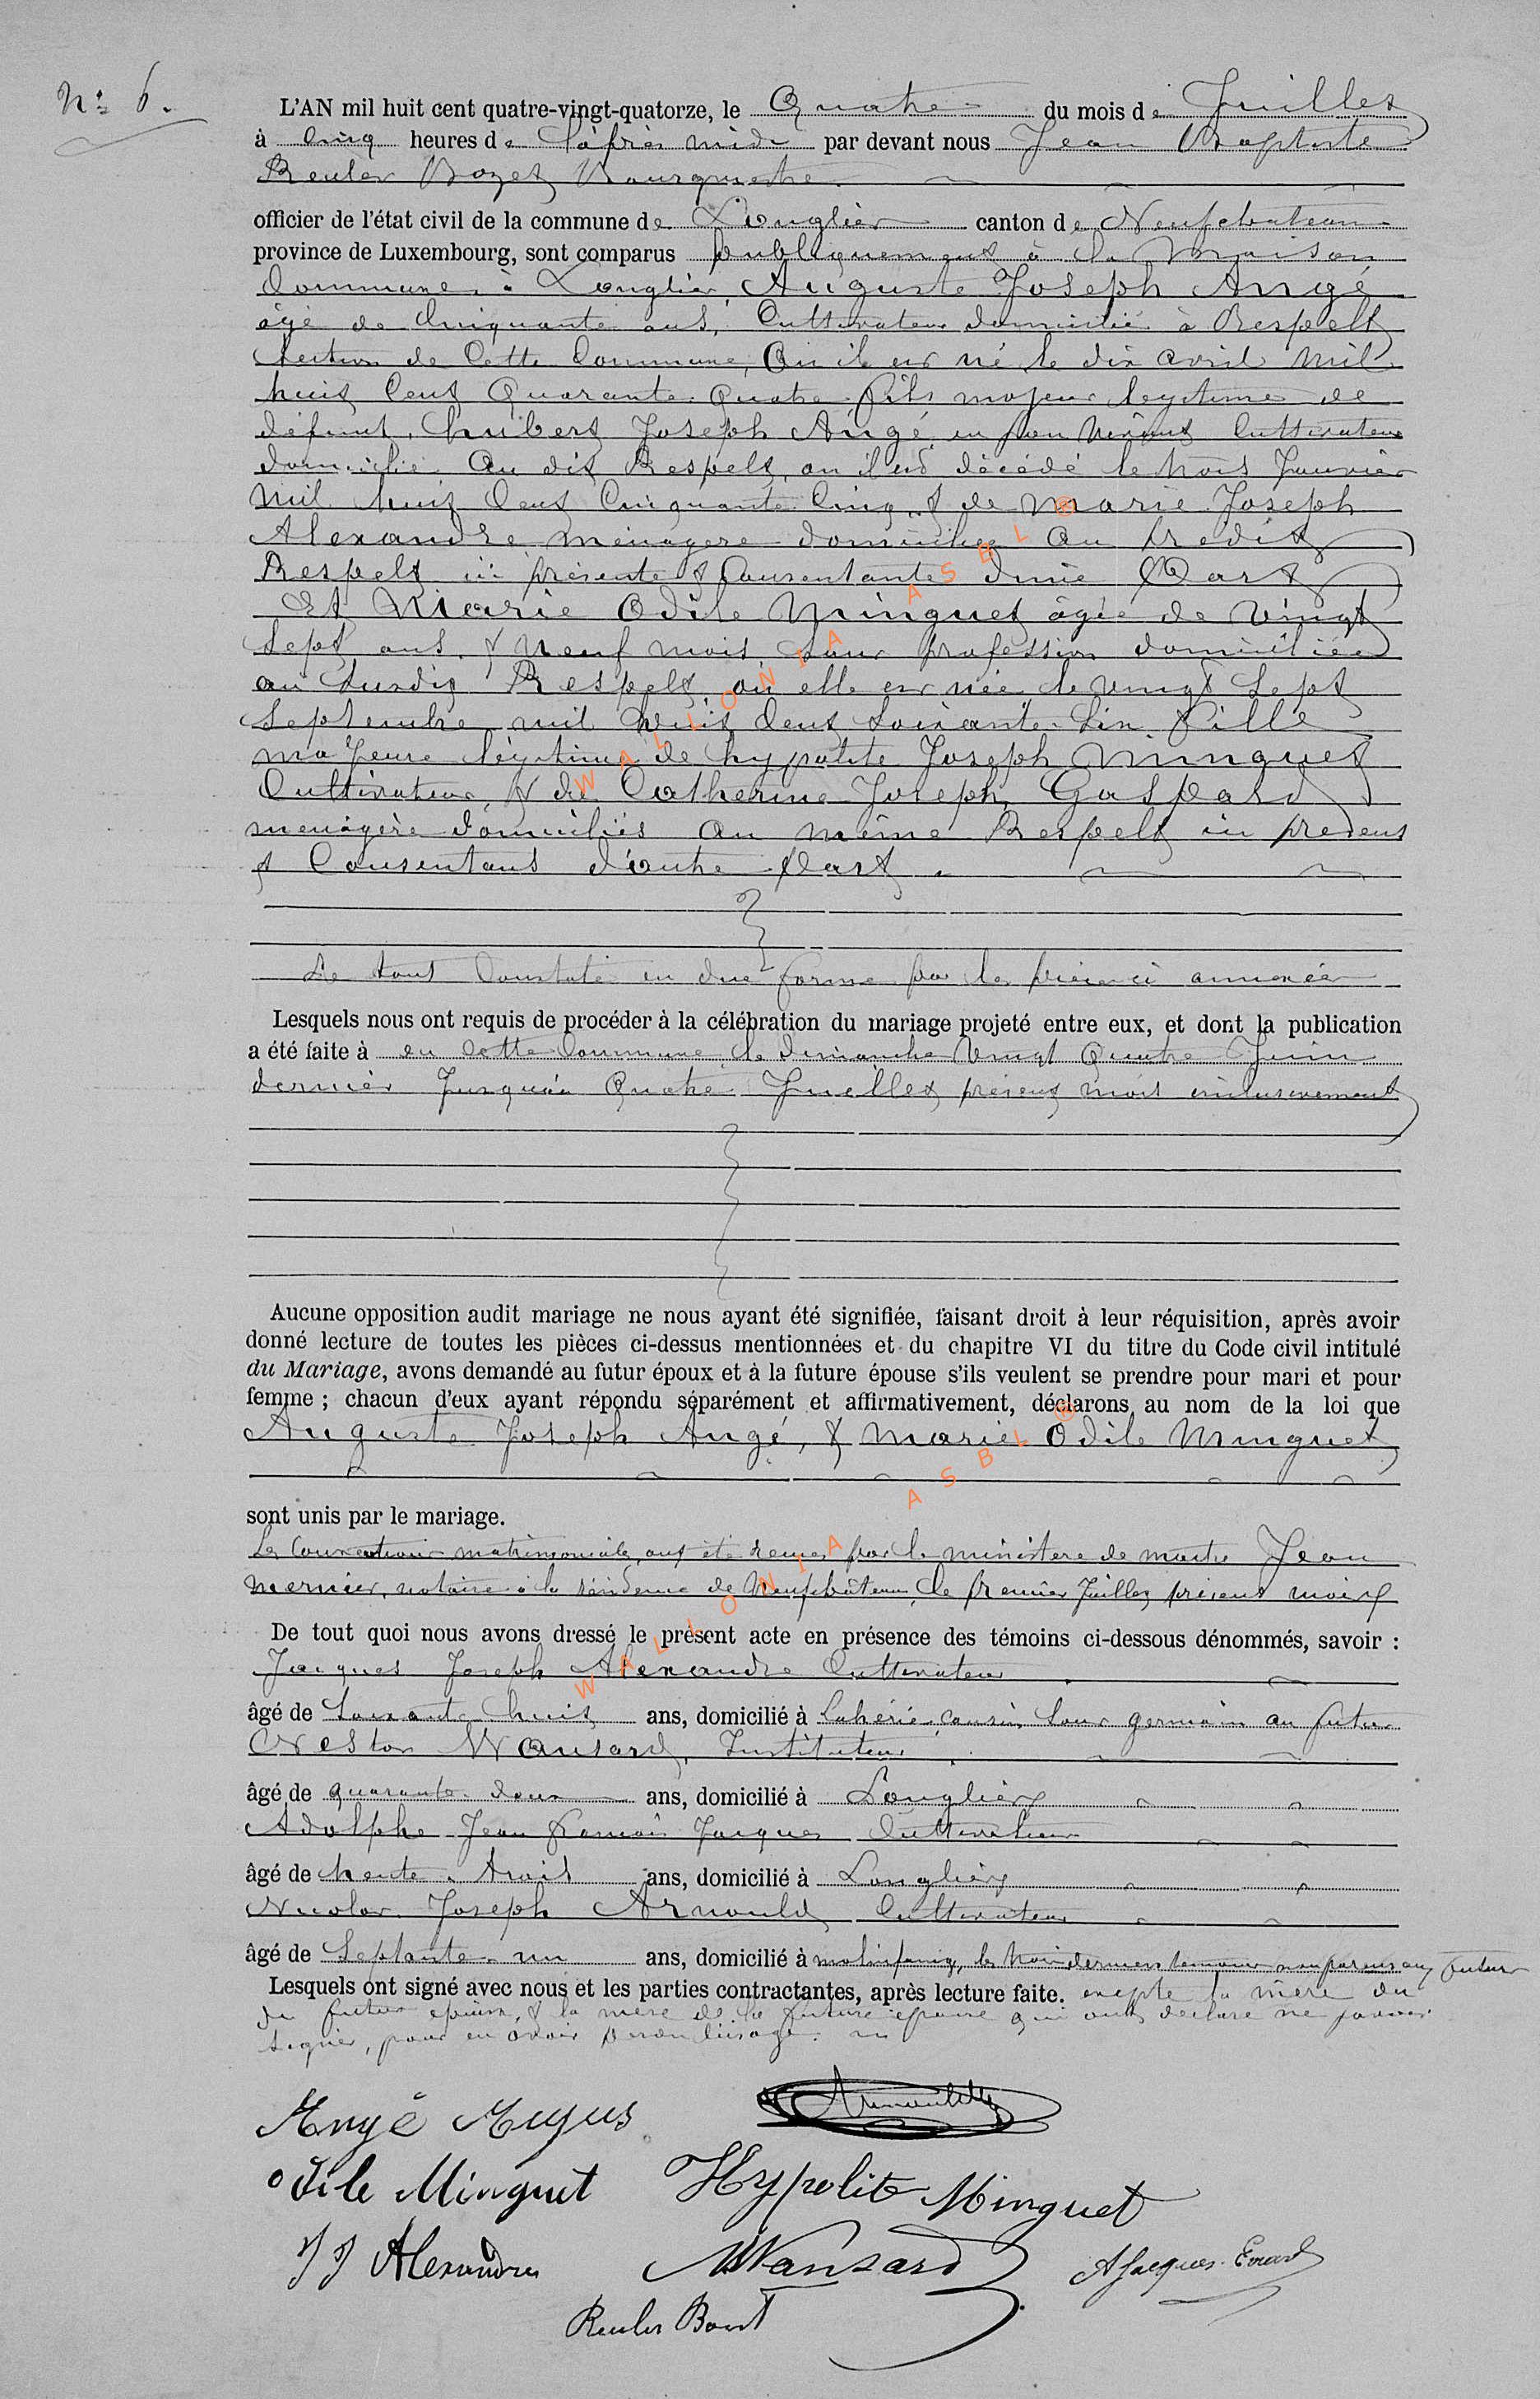 N° 6.
L'AN mil huit cent quatre-vingt-quatorze, le Quatre du mois de Juillet
à Cinq heures de l'après midi par devant nous Jean Baptiste
Reuler Bozet Bourgmestre
officier de l'état civil de la commune de Longlier canton de Neufchateau
province de Luxembourg, sont comparus publiquement à la Maison
Commune à Longlier Auguste Joseph Angé
âgé de Cinquante ans, Cultivateur domicilié à Respelt
Section de Cette Commune, Ou il est né le dix avril mil
huit Cent Quarante Quatre, fils majeur légitime de
défunt, Hubert Joseph Angé, en son vivant Cultivateur
domicilié Au dit Respelt, ou il est décédé le trois Janvier
Mil huit Cent Cinquante Cinq & de Marie Joseph
Alexandre ménagère domiciliée Au predit
Respelt ici présente & Consentante d'une Part
Et Marie Odile Minguet âgée de Vingt
Sept ans & Neuf mois, Sans profession domiciliée
au Susdit Respelt, où elle est née le vingt Sept
Septembre mil huit Cent Soixante Six fille
majeure légitime de hypolite Joseph Minguet
Cultivateur, & de Catherine Joseph Gaspard
menagère domiciliés Au même Respelt ici présens
& Consentans d'autre Part.
Le tout Constaté en due forme par les pièces ci annexées
Lesquels nous ont requis de procéder à la célébration du mariage projeté entre eux, et dont la publication
a été faite à en Cette Commune le dimanche Vingt Quatre Juin
dernier Jusqu'au Quatre Juillet présent mois inclusivement
Aucune opposition audit mariage ne nous ayant été signifiée, faisant droit à leur réquisition, après avoir
donné lecture de toutes les pièces ci-dessus mentionnées et du chapitre VI du titre du Code civil intitulé
du Mariage, avons demandé au futur époux et à la future épouse s'ils veulent se prendre pour mari et pour
femme ; chacun d'eux ayant répondu séparément et affirmativement, déclarons au nom de la loi que
Auguste Joseph Angé, & Marie Odile Minguet
sont unis par le mariage.
Les Conventions matrimoniales ont été reçues par le ministère de maitre Jean
Mernier, notaire à la résidence de Neufchâteau, le premier Juillet présent mois
De tout quoi nous avons dressé le présent acte en présence des témoins ci-dessous dénommés, savoir :
Jacques Joseph Alexandre Cultivateur
âgé de Soixante huit ans, domicilié à Lahérie, cousin sous germain au futur
Nestor Wansard, Instituteur
âgé de quarante deux ans, domicilié à Longlier
Adolphe Jean François Jacques Cultivateur
âgé de trente trois ans, domicilié à Longlier
Nicolas Joseph Arnould Cultivateur
âgé de Septante un ans, domicilié à molinfaing, les trois derniers temoins non parens aux futurs
Lesquels ont signé avec nous et les parties contractantes, après lecture faite. excepté la mère du
du futur époux, & la mère de la future épouse qui ont déclaré ne pouvoir
signer, pour en avoir perdu l'usage.
Angé Augus
Arnould
Odile Minguet Hypolite Minguet
J J Alexandre NWansard AJacques-Evrard
Reuler Bozet
WALLONIA ASBL ®
WALLONIA ASBL ®